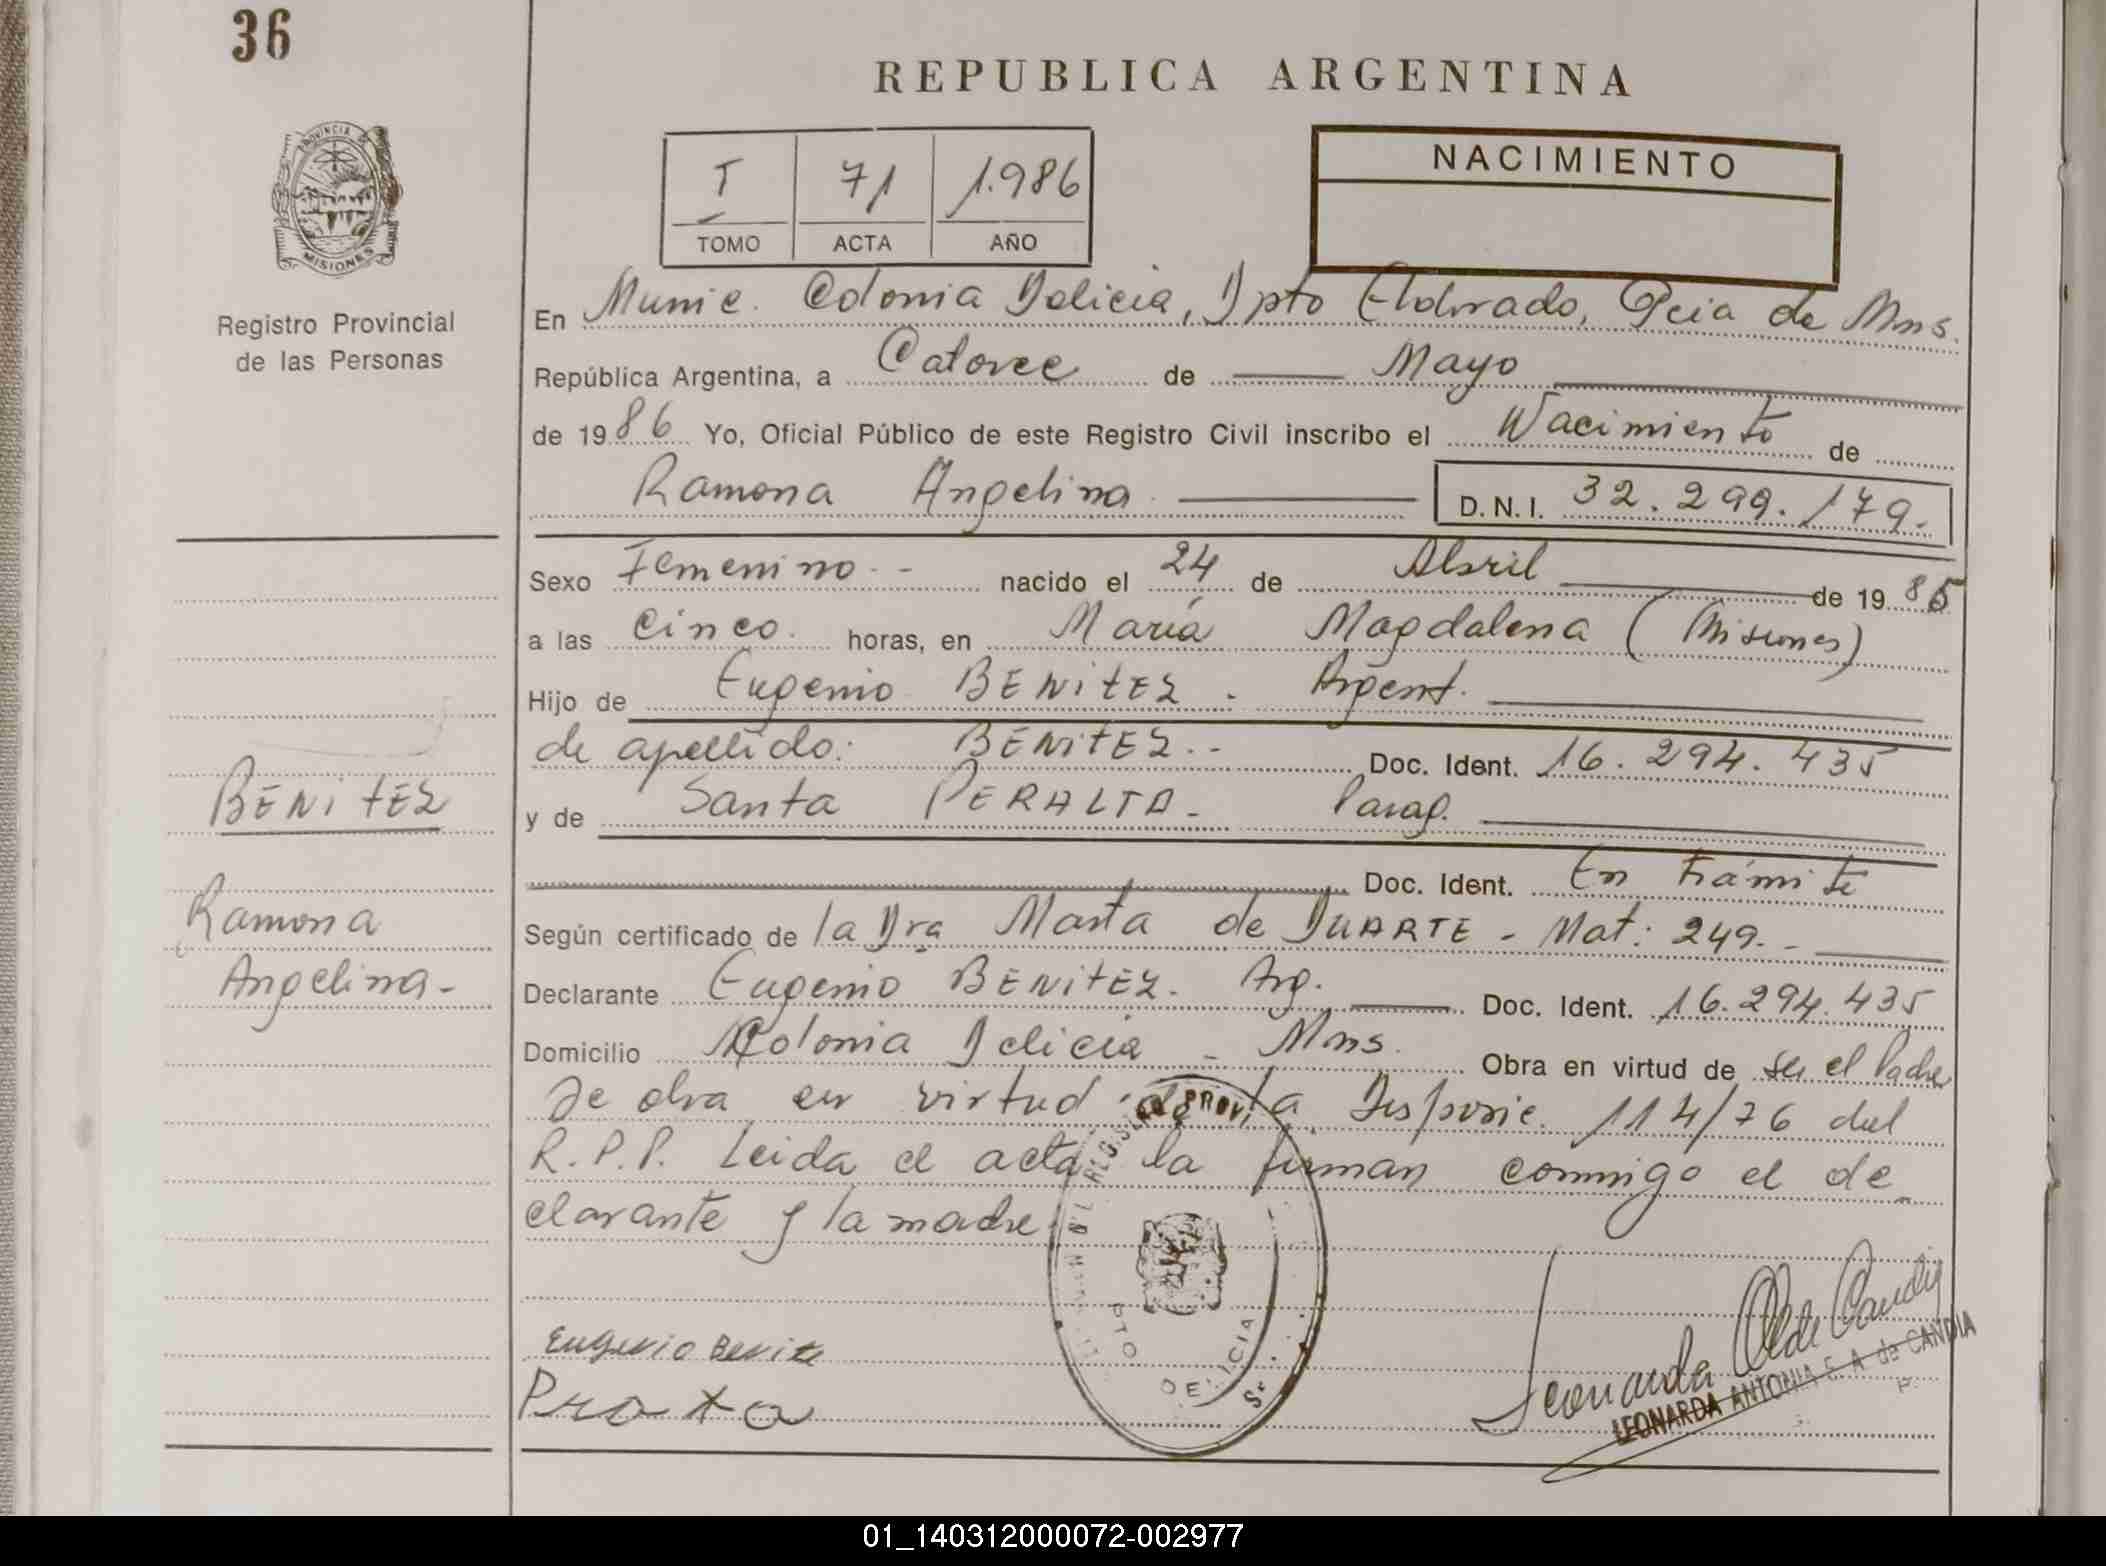 36
REPUBLICA ARGENTINA
PROVINCIA DE
MISIONES
Registro Provincial
de las Personas
T 71 1.986
TOMO ACTA AÑO
NACIMIENTO
En Munic. Colonia Delicia, Dpto Eldorado, Pcia de Mns.
República Argentina, a Catorce de Mayo
de 1986 Yo, Oficial Público de este Registro Civil inscribo el Nacimiento de
Ramona Angelina D.N.I. 32.299.179.-
Sexo Femenino -- nacido el 24 de Abril de 1986
a las Cinco. horas, en María Magdalena (Misiones)
Hijo de Eugenio BENITEZ - Argent.
de apellido: BENITEZ.-- Doc. Ident. 16.294.435
y de Santa PERALTA - Parag.
Doc. Ident. En trámite
Según certificado de la Dra Marta de DUARTE - Mat: 249.-
Declarante Eugenio BENITEZ. Arg. Doc. Ident. 16.294.435
Domicilio Colonia Delicia - Mns. Obra en virtud de ser el Padre
Se obra en virtud de la Disposic. 114/76 del
R.P.P. Leida el acta la firman conmigo el de-
clarante y la madre
BENITEZ
Ramona
Angelina-
DELICIA
Eugenio Benite
LEONARDA ANTONIA E. A. de CANDIA
01_140312000072-002977